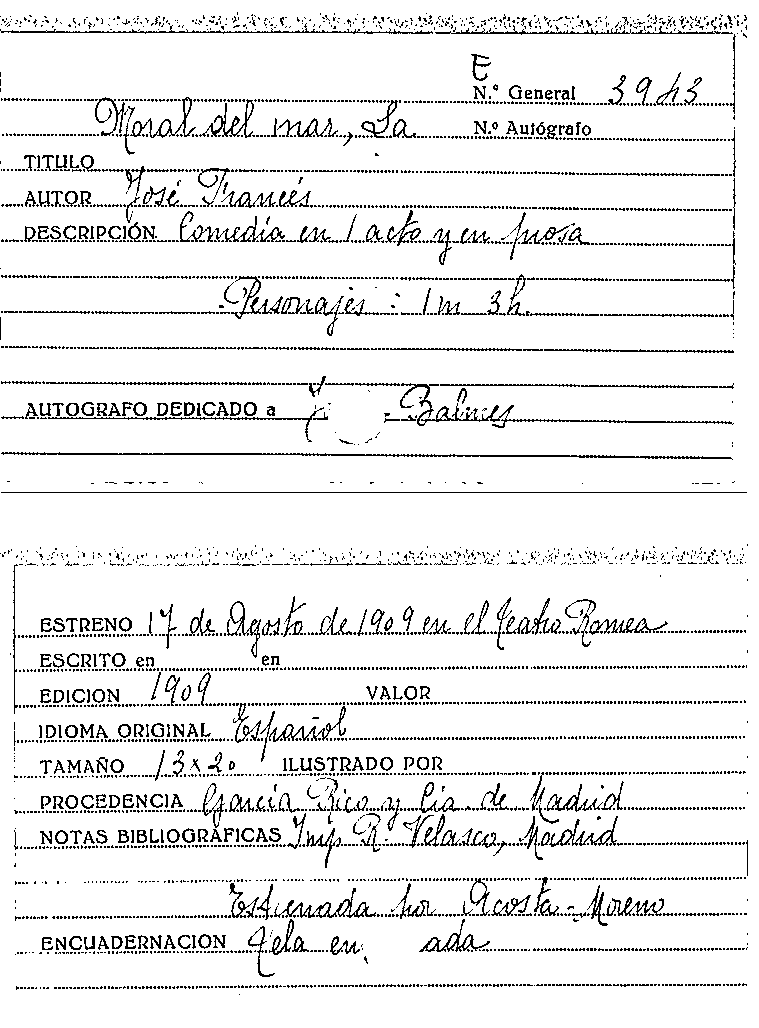 E
N.º General 3943
Moral del mar, La N.º Autógrafo
TITULO
AUTOR José Francés
DESCRIPCIÓN Comedia en 1 acto y en prosa
Personajes : 1 m 3 h.
AUTOGRAFO DEDICADO a - Balmes
ESTRENO 17 de Agosto de 1909 en el Teatro Romea
ESCRITO en en
EDICION 1909 VALOR
IDIOMA ORIGINAL Español
TAMAÑO 13 x 20 ILUSTRADO POR
PROCEDENCIA García Rico y Cía. de Madrid
NOTAS BIBLIOGRÁFICAS Imp. R. Velasco, Madrid
Estrenada por Acosta - Moreno
ENCUADERNACION Tela en ada